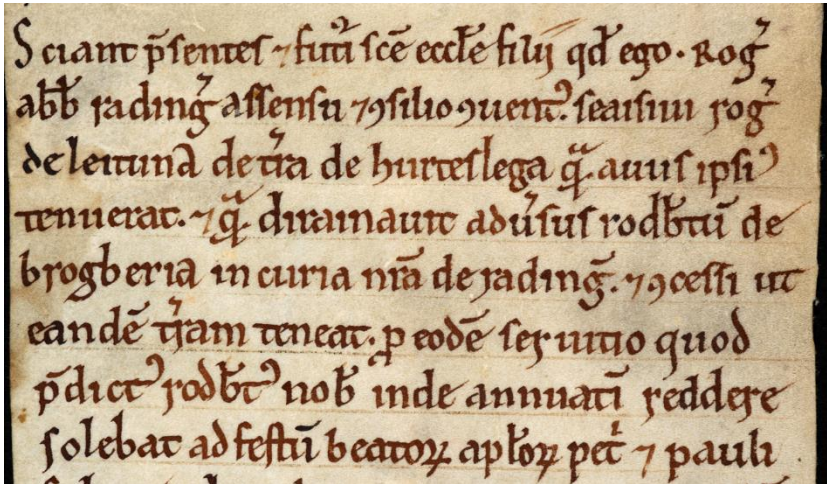 Sciant p̄sentes ⁊ futᷓi sc̄e eccłe filij qđ ego. Rog̃
ab̄b rading̃ assensu ⁊ ꝯsilio ꝯuent᾽. seaisiui rog̃
de leitunā de tr̃a de hurteslega q̄ᷓ. auus ipsi᾽
tenuerat. ⁊ q̄ᷓ. diramauit adu̾sus rodƀtū de
brogberia in curia nr̄a de rading̃. ⁊ ꝯcessi ut
eandē tr̃am teneat. ꝓ eodē seruitio quod
p̄dict᾽ rodƀt᾽ noƀ inde annuatī reddere
solebat ad festū beatoꝝ apłoꝝ pet̃ ⁊ pauli